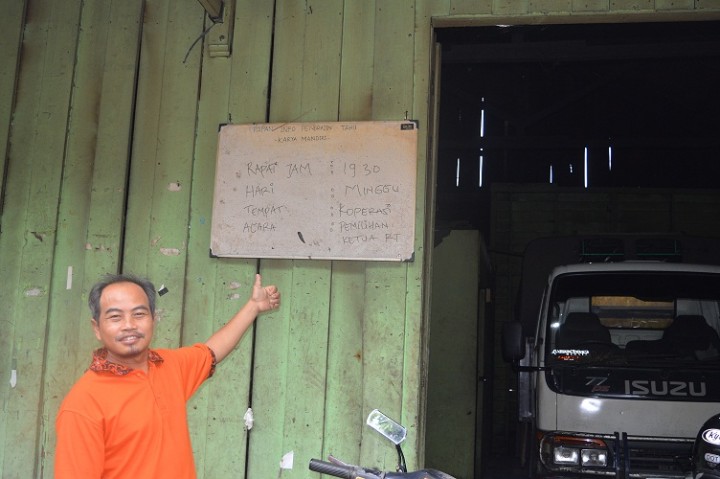 PAPAN INFO PENGRAJIN TAHU
KARYA MANDIRI
RAPAT JAM : 19.30
HARI : MINGGU
TEMPAT : KOPERASI
ACARA : PEMILIHAN
KETUA RT
ISUZU